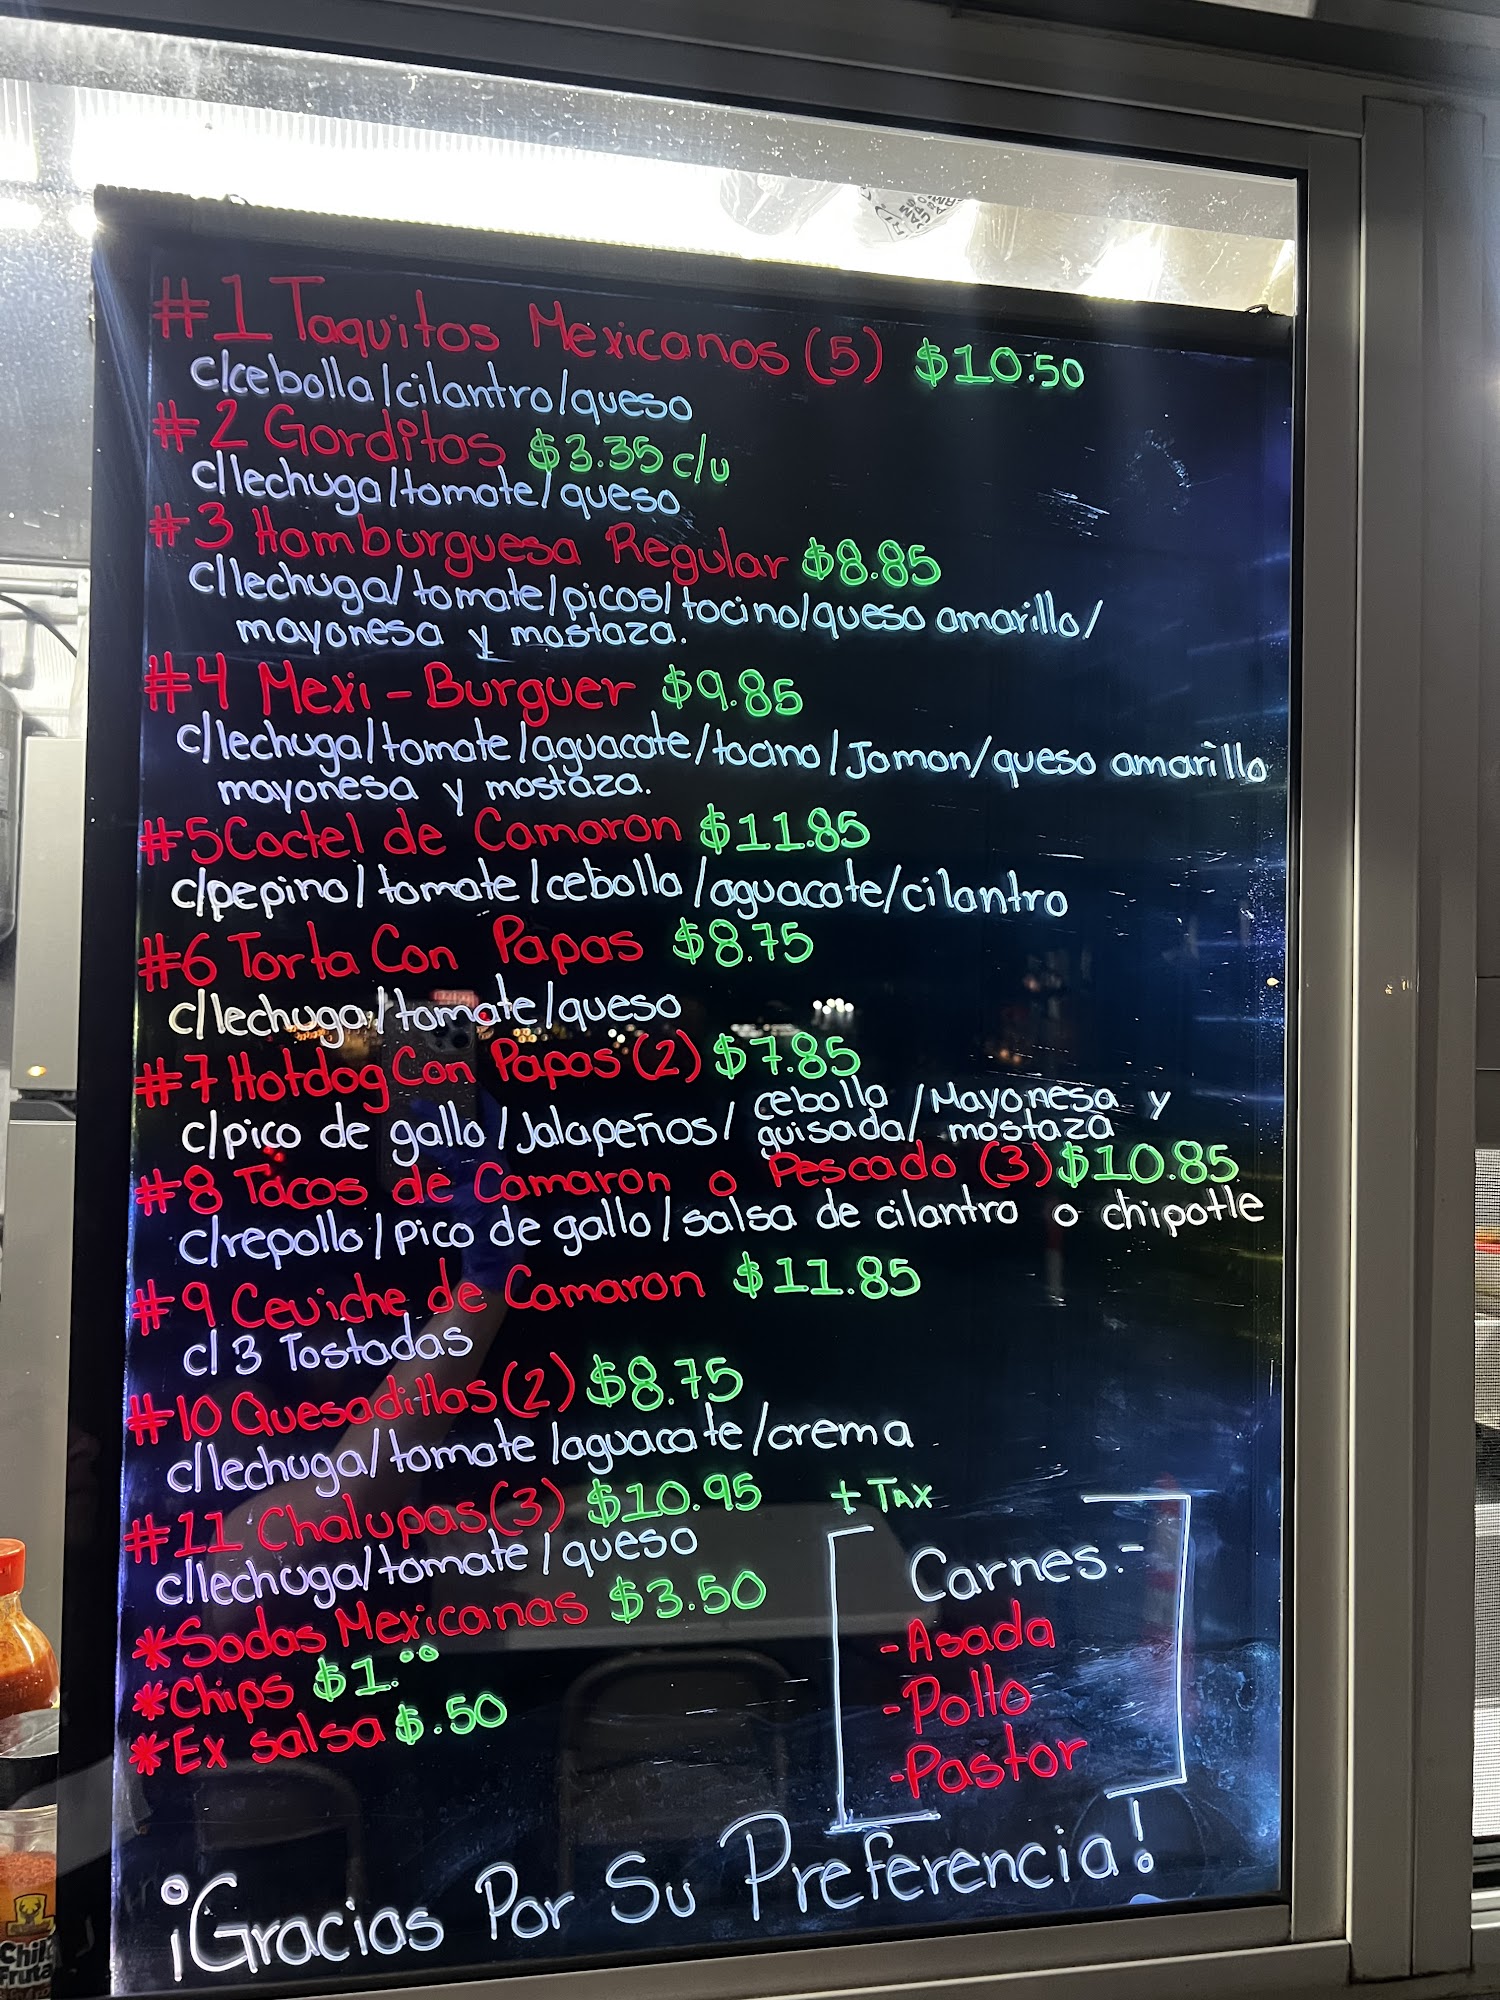 #1 Taquitos Mexicanos (5) $10.50
c/cebolla/cilantro/queso
#2 Gorditos $3.35 c/u
c/lechuga/tomate/queso
#3 Hamburguesa Regular $8.85
c/lechuga/tomate/picos/tocino/queso amarillo/
mayonesa y mostaza.
#4 Mexi-Burguer $9.85
c/lechuga/tomate/aguacate/tocino/Jamon/queso amarillo
mayonesa y mostaza.
#5 Coctel de Camaron $11.85
c/pepino/tomate/cebolla/aguacate/cilantro
#6 Torta Con Papas $8.75
c/lechuga/tomate/queso
#7 Hotdog Con Papas (2) $7.85
c/pico de gallo/Jalapeños/cebolla guisada/Mayonesa y mostaza
#8 Tacos de Camaron o Pescado (3) $10.85
c/repollo/pico de gallo/salsa de cilantro o chipotle
#9 Ceviche de Camaron $11.85
c/ 3 Tostadas
#10 Quesadillas (2) $8.75
c/lechuga/tomate/aguacate/crema
#11 Chalupas (3) $10.95
c/lechuga/tomate/queso
*Sodas Mexicanas $3.50
*Chips $1.00
*Ex salsa $.50
+ TAX
Carnes:-
-Asada
-Pollo
-Pastor
¡Gracias Por Su Preferencia!